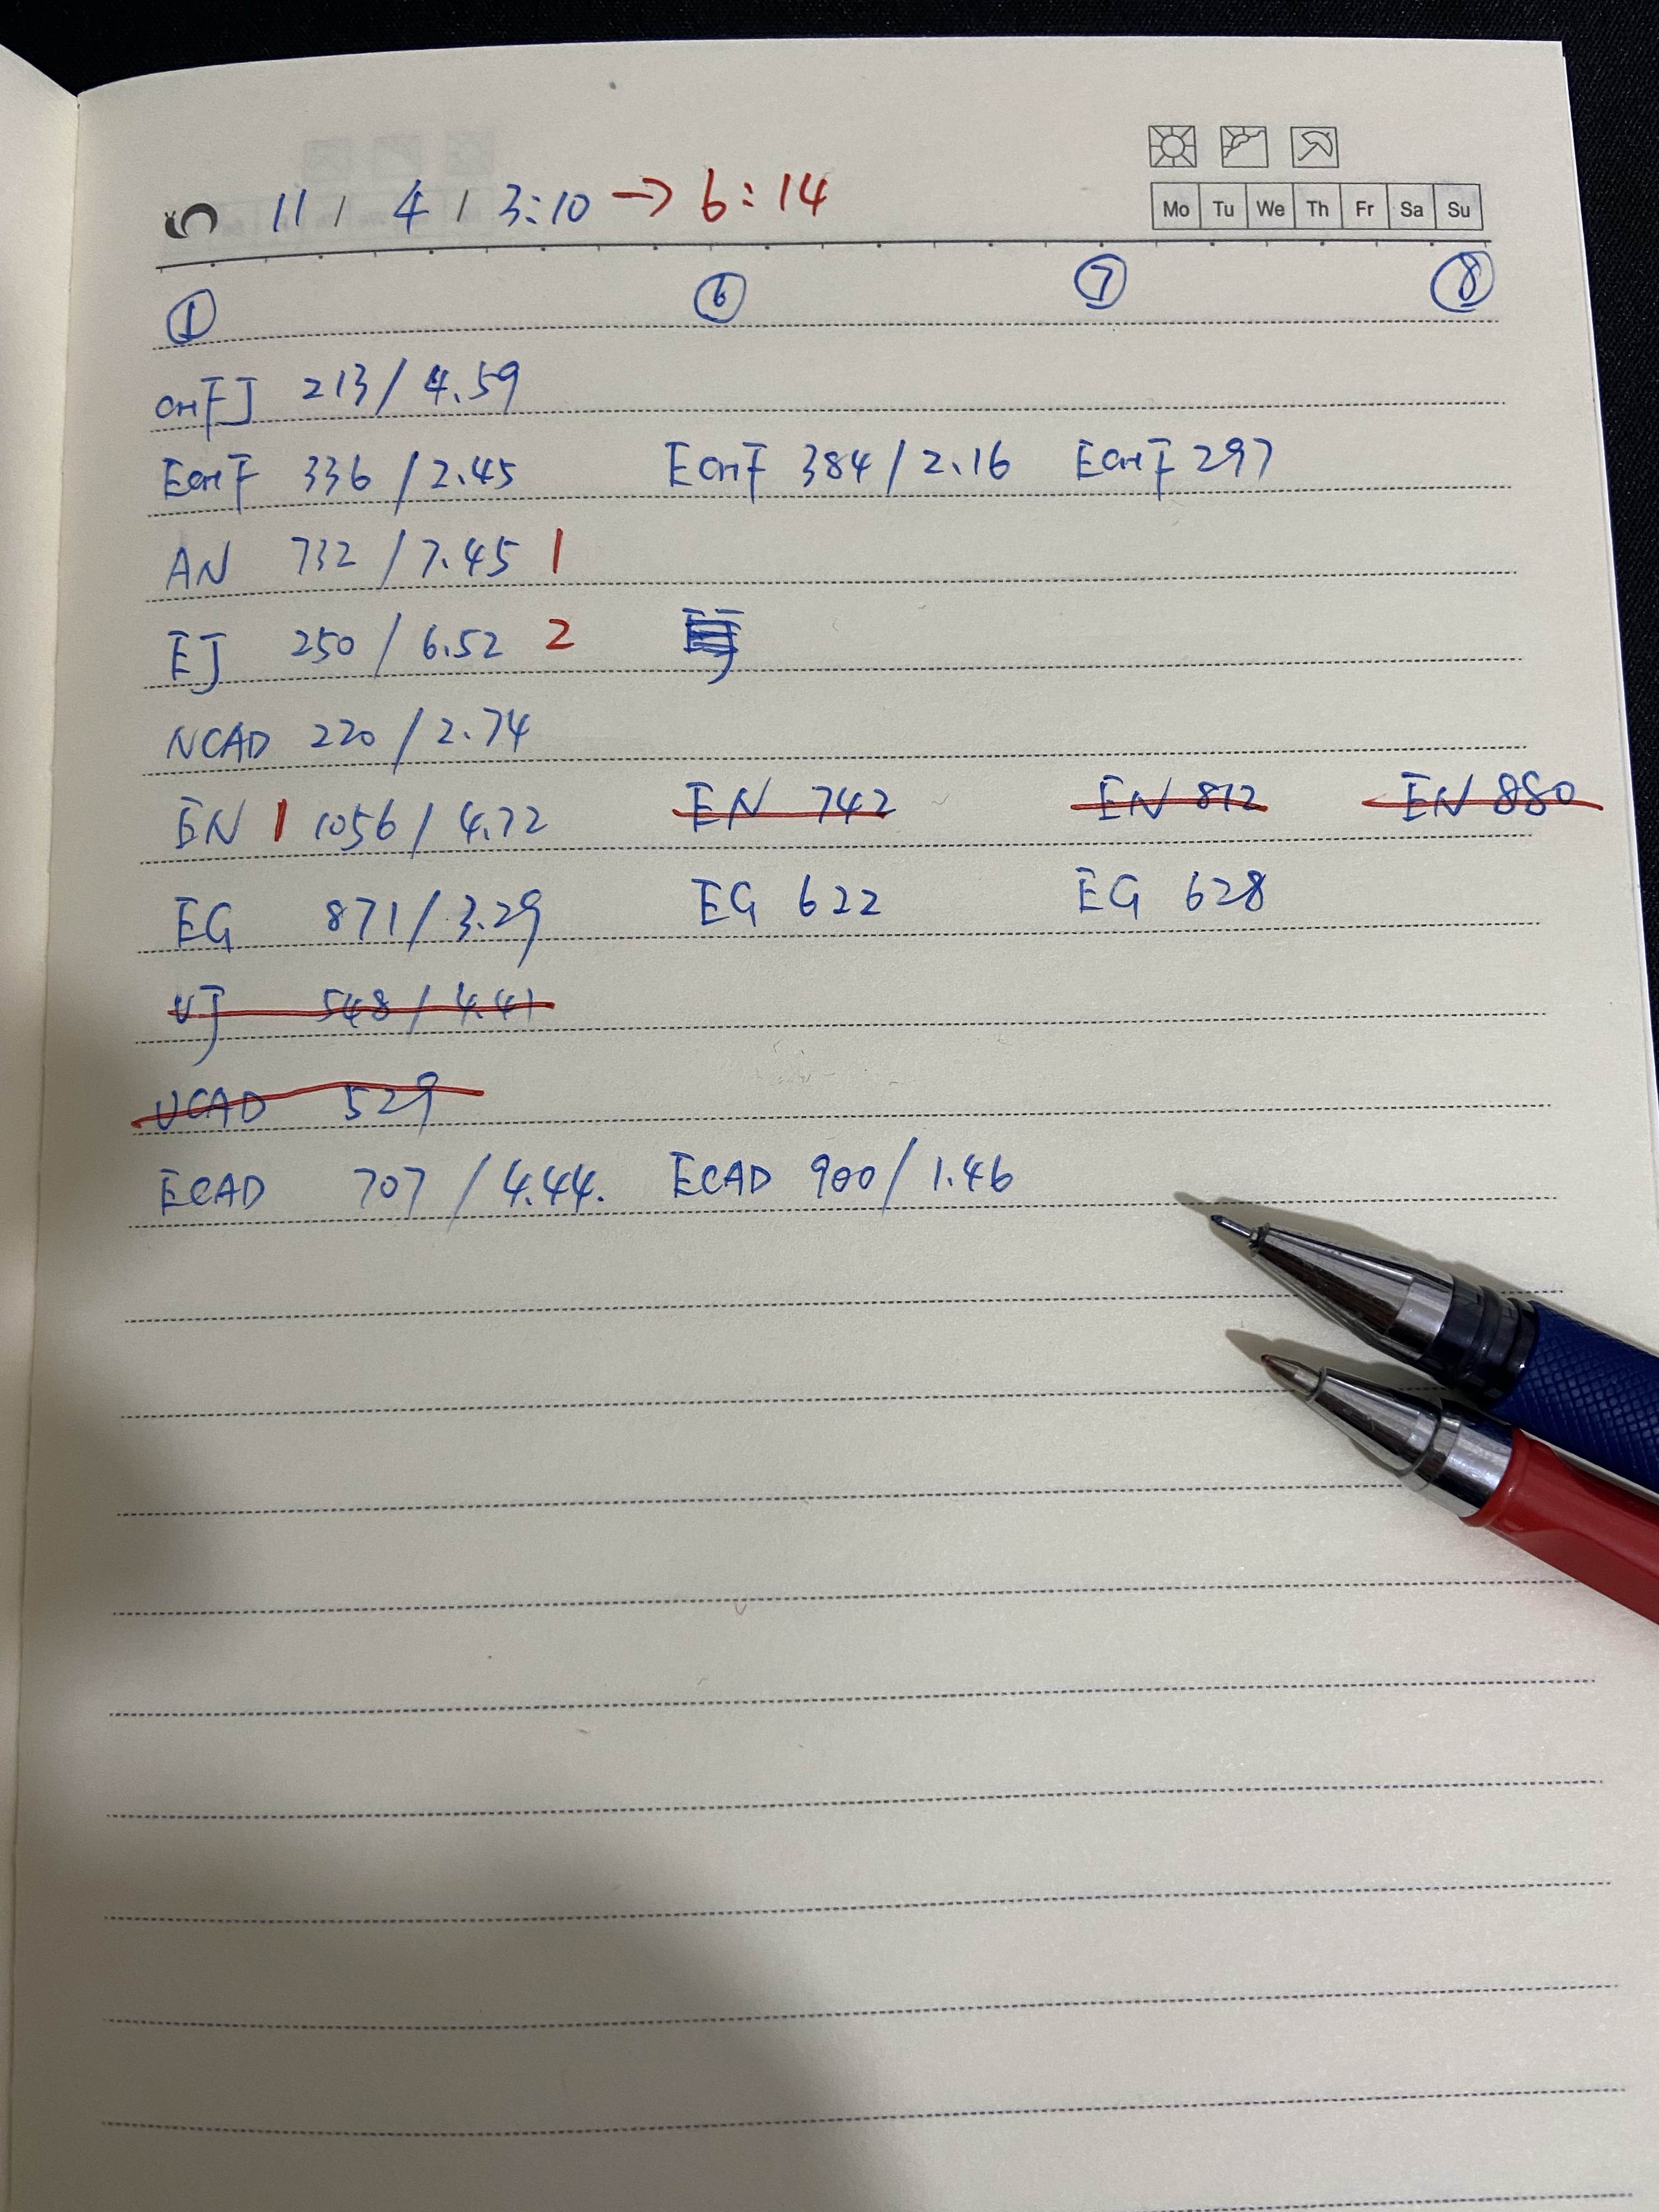 11 / 4 / 3:10 → 6:14
Mo Tu We Th Fr Sa Su
① ⑥ ⑦ ⑧
CHFJ 213 / 4.59
ECHF 336 / 2.45 ECHF 384 / 2.16 ECHF 297
AN 732 / 7.45 1
EJ 250 / 6.52 2 EJ
NCAD 220 / 2.74
EN 1 1056 / 4.72 EN 742 EN 812 EN 880
EG 871 / 3.29 EG 622 EG 628
UJ 548 / 4.41
UCAD 529
ECAD 707 / 4.44. ECAD 900 / 1.46